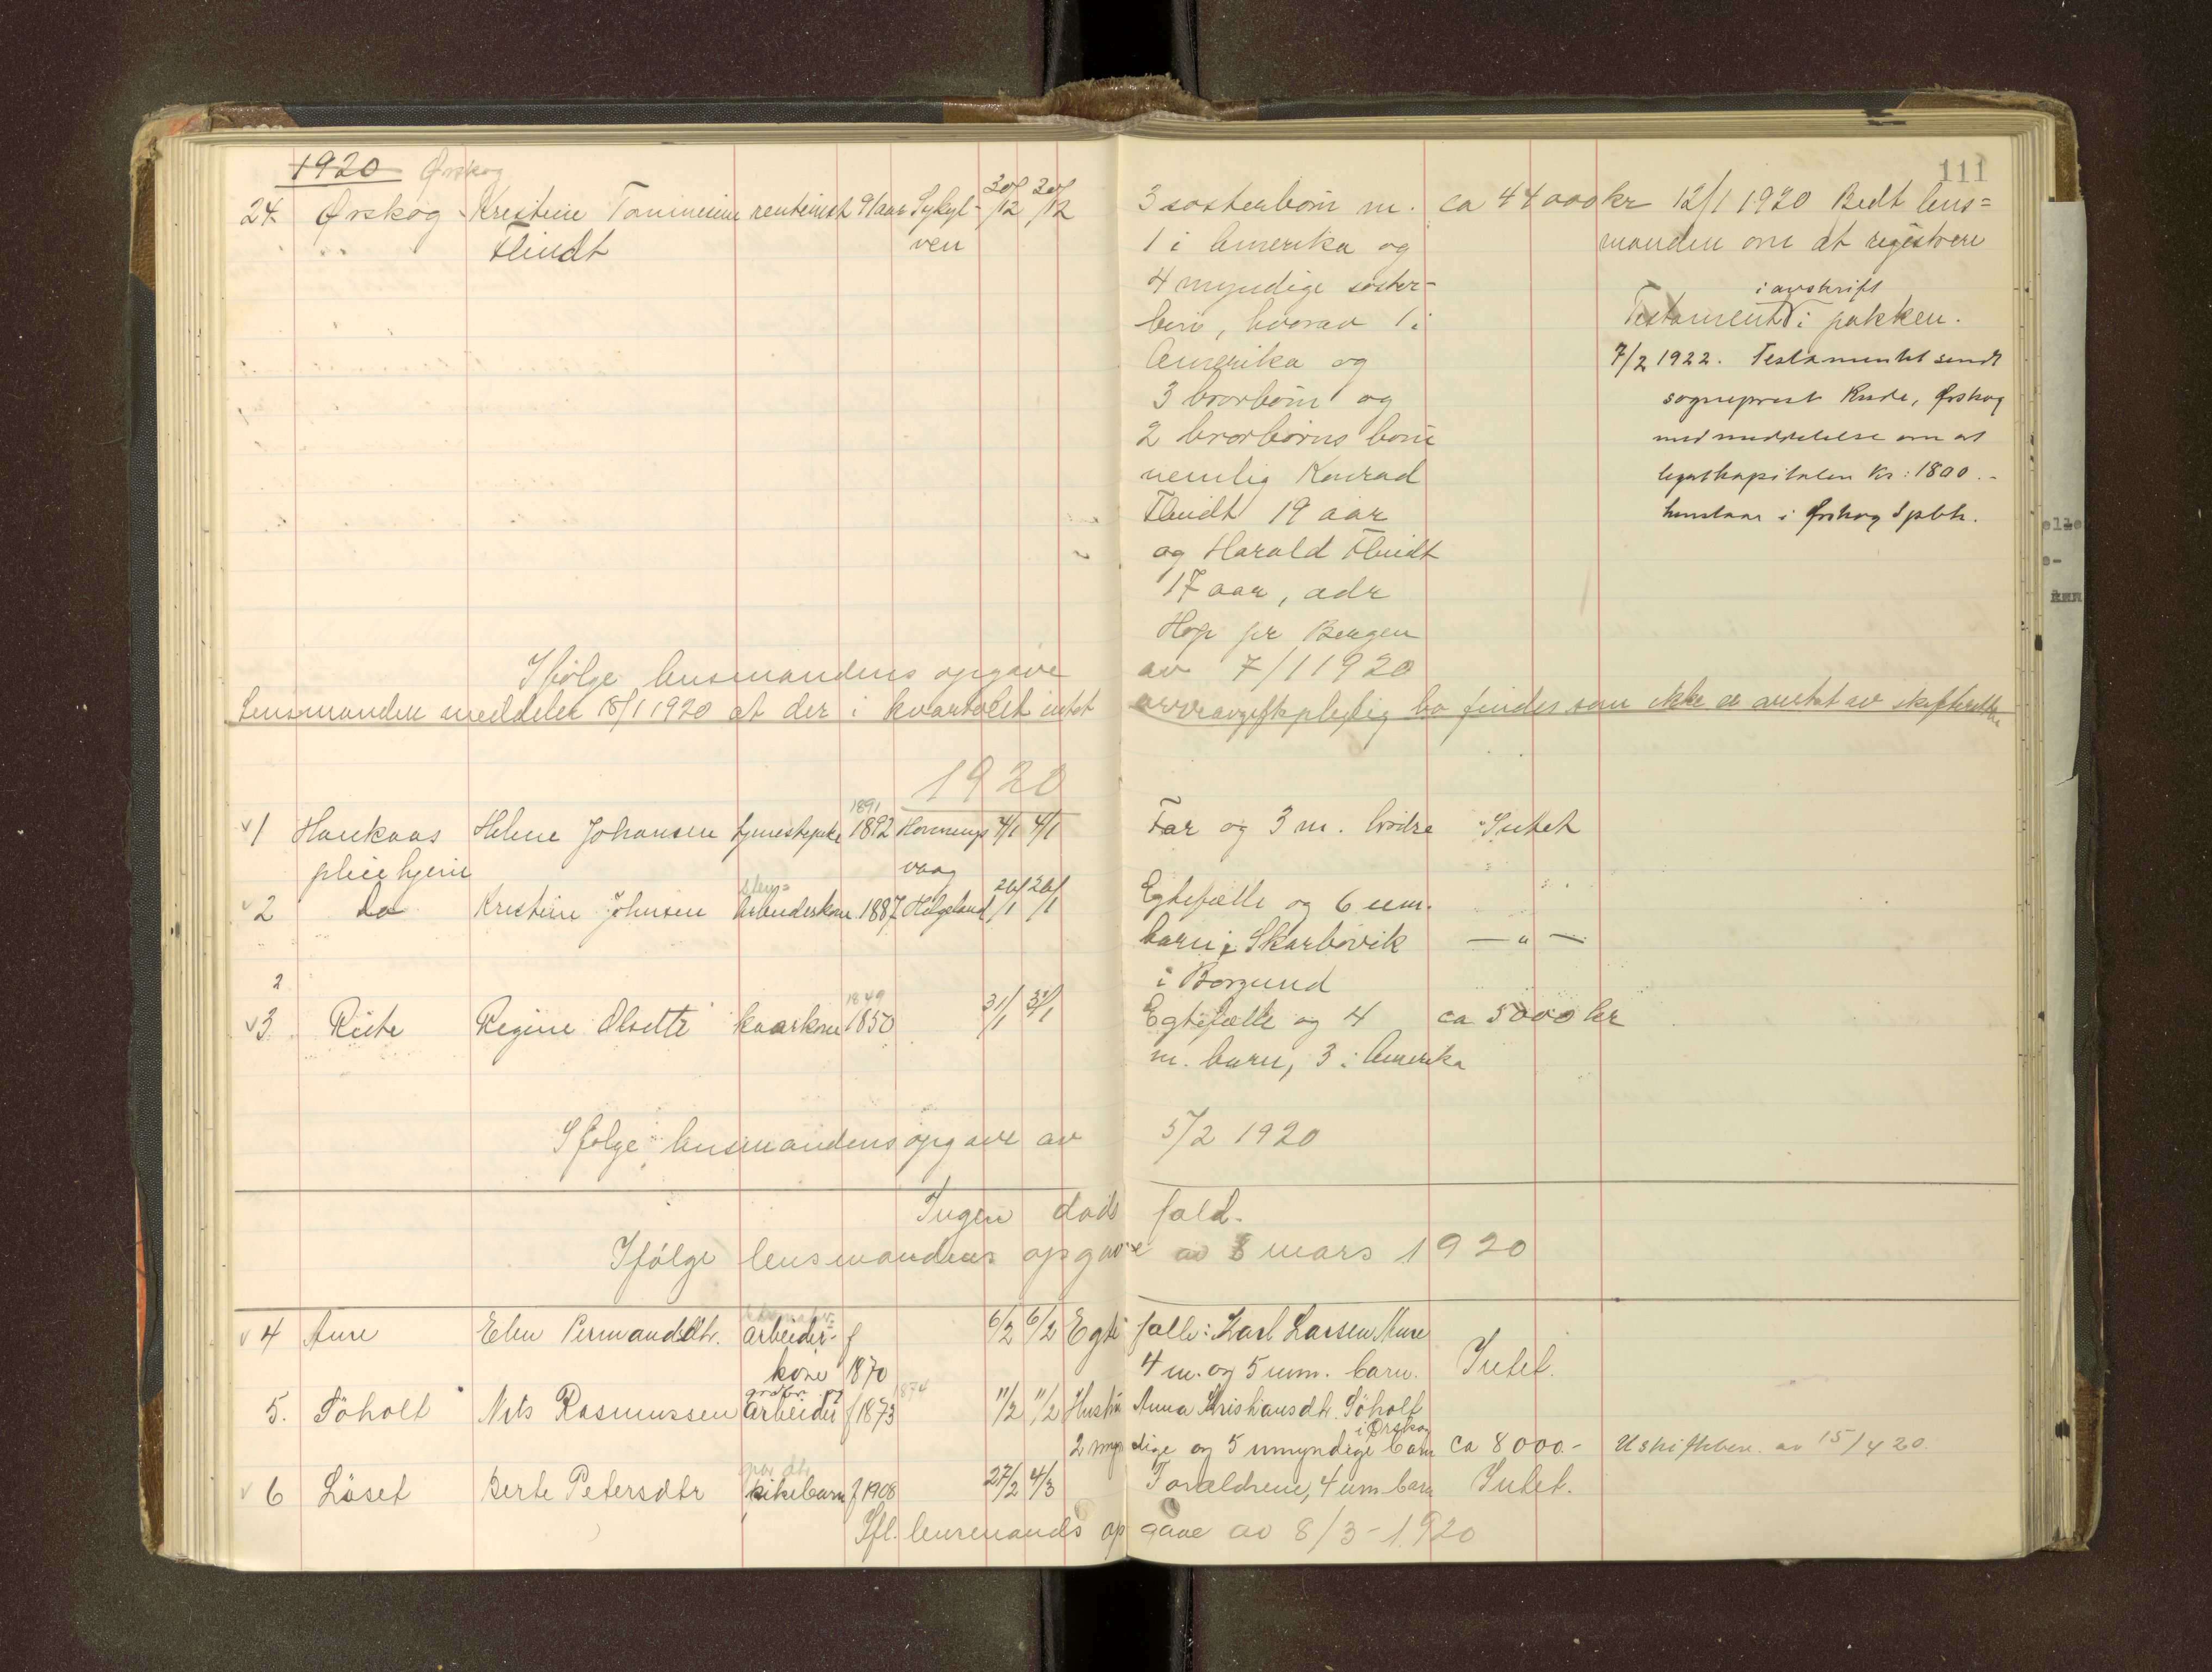 1920 Ørskog
111
24. Ørskog Kristine Tommine rentenist 91 aar Sykyl- 30/12 30/12 3 søsterbørn m. ca 44000 kr 12/1 1920 Bedt lens=
Flindt ven 1 i Amerika og manden om at registrere
4 myndige søster- i avskrift
børn, hvorav 1 i Testament i pakken.
Amerika og 7/2 1922. Testamentet sendt
3 brorbørn og sogneprest Rude, Ørskog
2 brorbørns børn med meddelelse om at
nemlig Konrad legatkapitalen kr: 1800.-
Flindt 19 aar henstaar i Ørskog Spbk.
og Harald Flindt
17 aar, adr
Hop pr Bergen
Ifølge lensmandens opgave av 7/1 1920
Lensmanden meddeler 18/1 1920 at der i kvartalet intet arveavgiftspligtig bo findes som ikke er anmeldt av skifteretten
1920
1 Haukaas Helene Johansen tjenestepike 1891 1892 Honnings 4/1 4/1 Far og 3 m. brødre Intet
pleiehjem vaag
2 do Kristine Johnsen arbeiderkone 1887 Helgeland 26/1 26/1 Egtefælle og 6 um.
barn i Skarbøvik — " —
i Borgund
2
3. Riste Regine Olsdtr kaarkone 1849 1850 31/1 31/1 Egtefælle og 4 ca 5000 kr
m. barn, 3 i Amerika
Ifølge lensmandens opgave av 5/2 1920
Ingen dødsfald.
Ifølge lensmandens opgave av 8 mars 1920
4 Aure Elen Permandsdtr. arbeider- f 6/2 6/2 Egtefælle: Karl Larsen Aure
kone 1870 4 m. og 5 um. barn. Intet.
5. Søholt Nils Rasmussen gaardbr. og arbeider f 1873 1874 11/2 11/2 Hustru Anna Kristiansdtr. Søholt
i Ørskog
2 myndige og 5 umyndige barn ca 8000.- Uskiftebev. av 15/4 20.
6 Løset Berte Petersdtr pikebarn f 1908 27/2 4/3 Forældrene, 4 um barn Intet.
Ifl. lensmands opgave av 8/3-1920